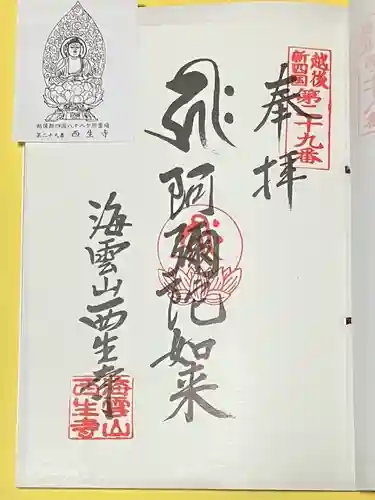 越後
新四国
第二十九番
奉拝
阿彌陀如来
海雲山西生寺
海雲山
西生寺
越後新四国八十八ヶ所霊場
第二十九番 西生寺